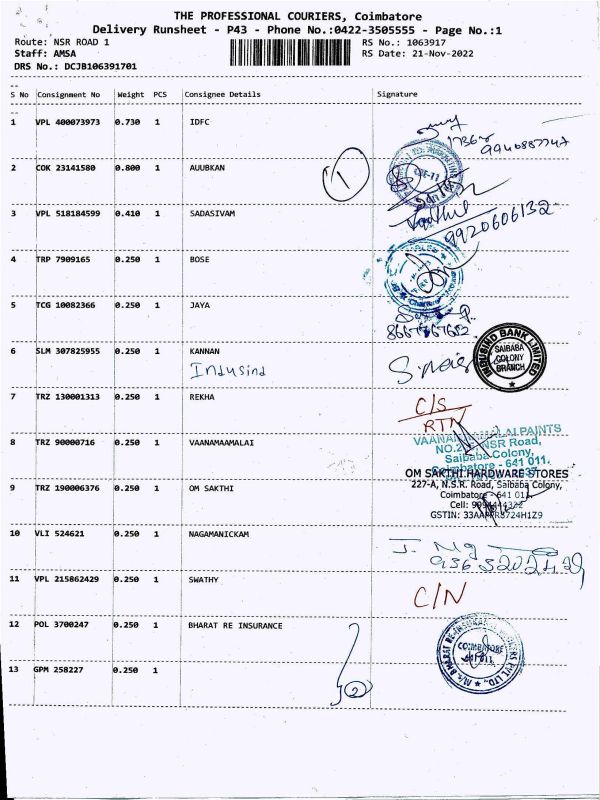 THE PROFESSIONAL COURIERS, Coimbatore
Delivery Runsheet - P43 - Phone No.:0422-3505555 - Page No.:1
Route: NSR ROAD 1 RS No.: 1063917
Staff: AMSA RS Date: 21-Nov-2022
DRS No.: DCJB106391701
S No Consignment No Weight PCS Consignee Details Signature
1 VPL 400073973 0.730 1 IDFC
2 COK 23141580 0.800 1 AUUBKAN
1
3 VPL 518184599 0.410 1 SADASIVAM
9920606132
4 TRP 7909165 0.250 1 BOSE
5 TCG 10082366 0.250 1 JAYA
6 SLM 307825955 0.250 1 KANNAN
Indusind
INDUSIND BANK LIMITED
SAIBABA
COLONY
BRANCH
7 TRZ 130001313 0.250 1 REKHA C/S
RTN
8 TRZ 90000716 0.250 1 VAANAMAAMALAI
NSR Road,
Saibaba Colony,
Coimbatore - 641 011.
OM SAKTHI HARDWARE STORES
9 TRZ 190006376 0.250 1 OM SAKTHI
227-A, N.S.R. Road, Saibaba Colony,
Coimbatore - 641 011.
Cell:
GSTIN:
10 VLI 524621 0.250 1 NAGAMANICKAM
11 VPL 215862429 0.250 1 SWATHY C/N
12 POL 3700247 0.250 1 BHARAT RE INSURANCE
COIMBATORE
13 GPM 258227 0.250 1
2